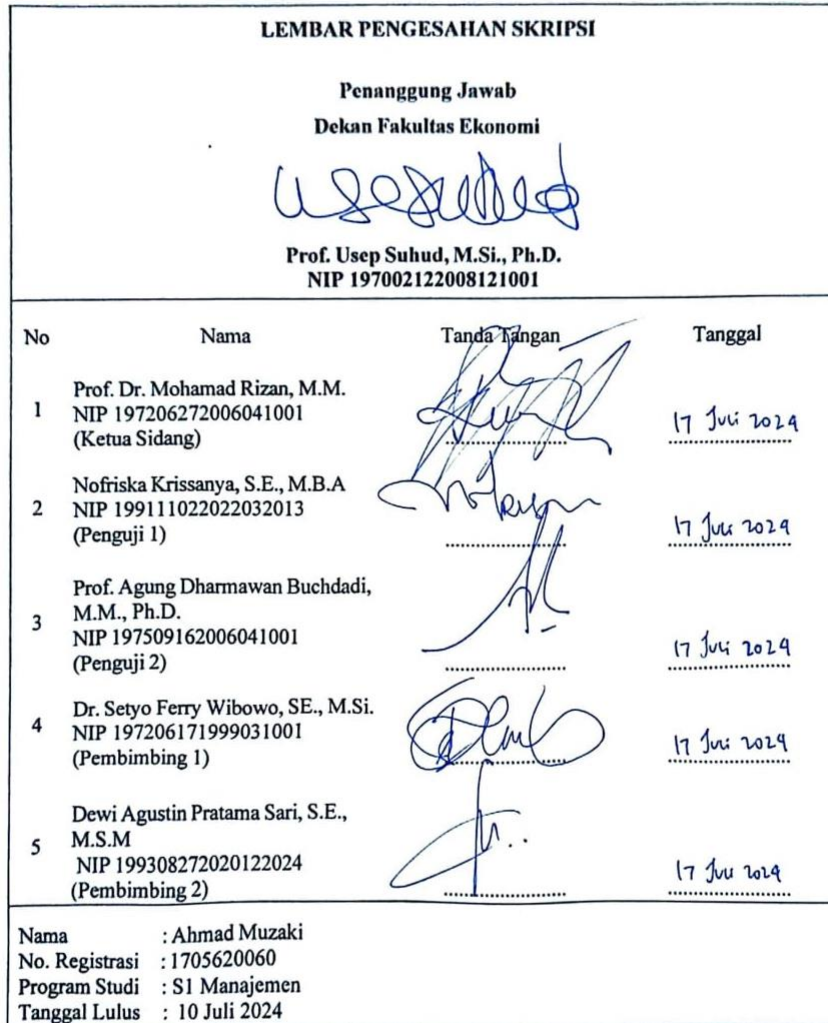 LEMBAR PENGESAHAN SKRIPSI
Penanggung Jawab
Dekan Fakultas Ekonomi
Prof. Usep Suhud, M.Si., Ph.D.
NIP 197002122008121001
No Nama Tanda Tangan Tanggal
1 Prof. Dr. Mohamad Rizan, M.M.
NIP 197206272006041001
(Ketua Sidang)
17 Juli 2024
2 Nofriska Krissanya, S.E., M.B.A
NIP 199111022022032013
(Penguji 1)
17 Juli 2024
3 Prof. Agung Dharmawan Buchdadi,
M.M., Ph.D.
NIP 197509162006041001
(Penguji 2)
17 Juli 2024
4 Dr. Setyo Ferry Wibowo, SE., M.Si.
NIP 197206171999031001
(Pembimbing 1)
17 Juli 2024
5 Dewi Agustin Pratama Sari, S.E.,
M.S.M
NIP 199308272020122024
(Pembimbing 2)
17 Juli 2024
Nama : Ahmad Muzaki
No. Registrasi : 1705620060
Program Studi : S1 Manajemen
Tanggal Lulus : 10 Juli 2024